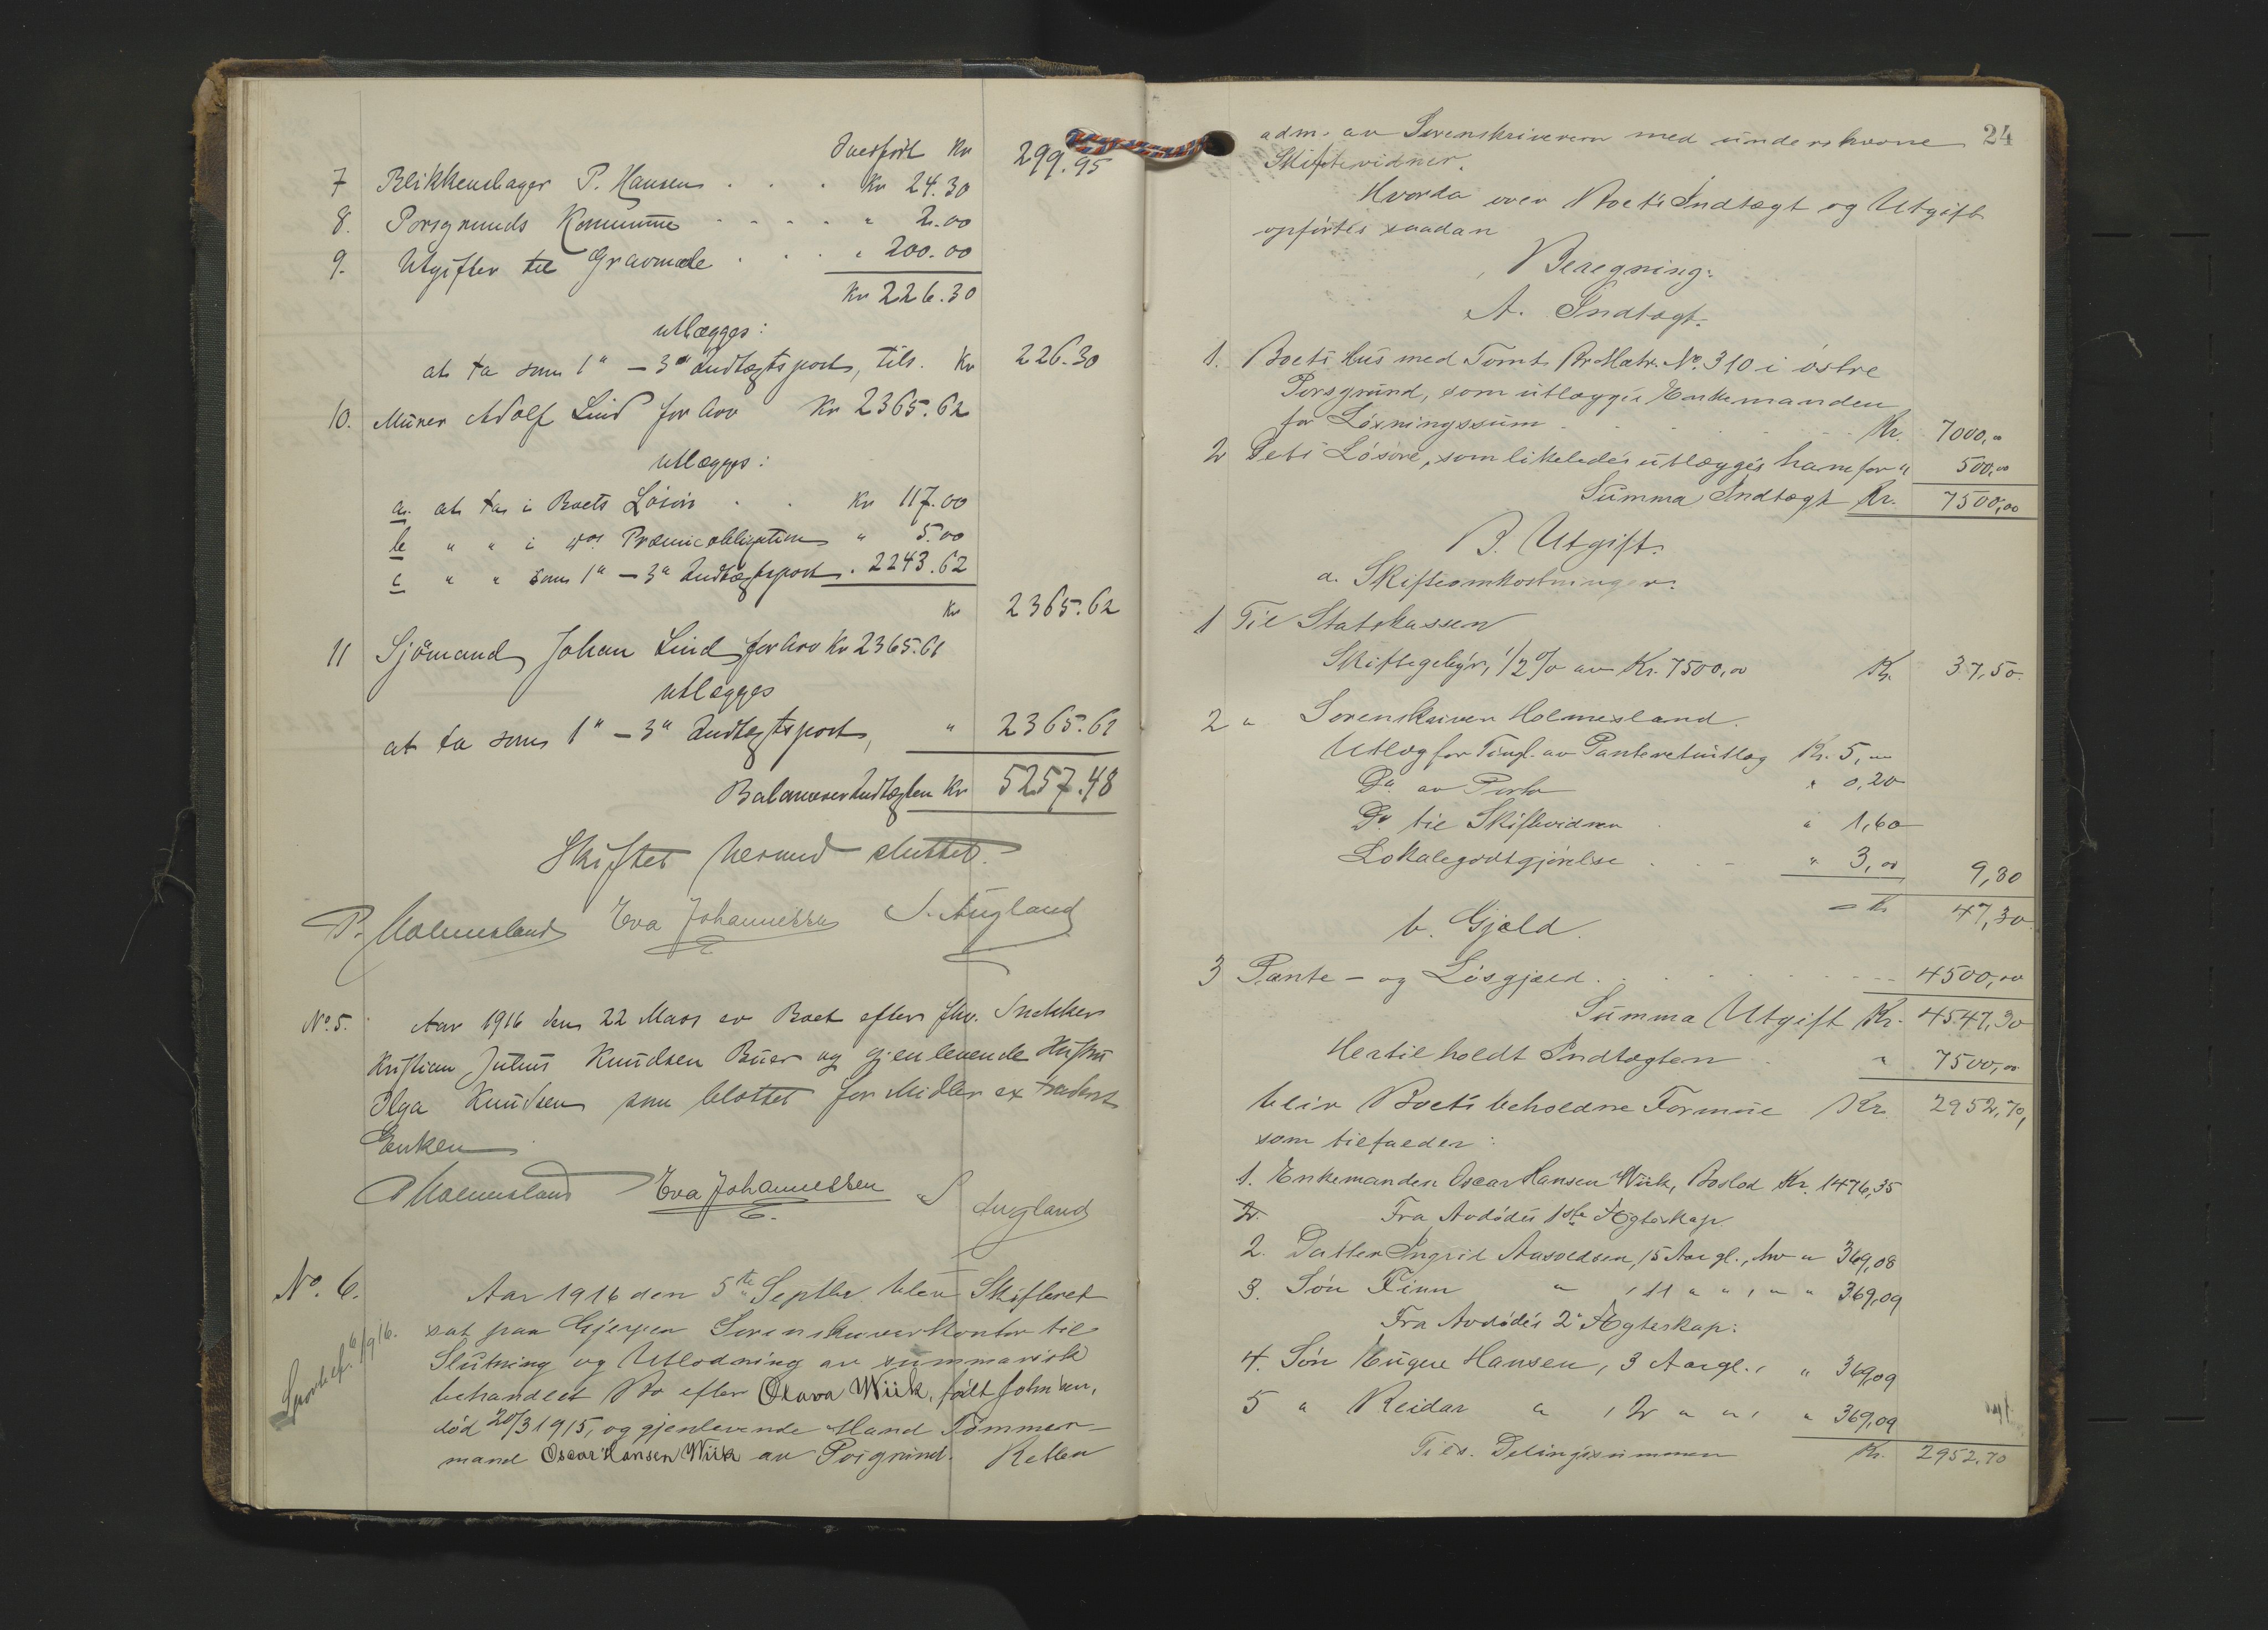 Overført Kr 299.95
7 Blikkenslager P. Hansen . . . Kr 24.30
8. Porsgrunds Kommune - - - - " 2.00
9. Utgifter til Gravmæle . . . " 200.00
Kr 226.30
utlægges:
at ta som 1" – 3" Indtægtspost, tils. Kr 226.30
10. Murer Adolf Lind for Arv Kr 2365.62
utlægges:
a. at ta i Boets Løsøre . . Kr 117.00
b " " i do. Præmieobligation " 5.00
c " " som 1" – 3" Indtægtspost . 2243.62
Kr 2365.62
11 Sjömand Johan Lind for Arv Kr 2365.61
utlægges
at ta som 1" – 3" Indtægtspost, " 2365.61
Balancerer Indtægten Kr 5257.48
Skiftet hermed sluttet.
P. Holmesland Eva Johannessen S. Augland
No. 5. Aar 1916 den 22 Mars er Boet efter fhv. Snekker
Kristian Julius Knudsen Buer og gjenlevende Hustru
Olga Knudsen som blottet for Midler extradert
Enken
P Holmesland Eva Johannessen S Augland
No. 6. Aar 1916 den 5te Septbr. blev Skifteret
sat paa Gjerpen Sorenskriverkontor til
Slutning og Utlodning av summarisk
behandlet Bo efter Olava Wiik, født Johnsen,
død 20/3 1915, og gjenlevende Mand Tømmer-
mand Oscar Hansen Wiik av Porsgrund. Retten
24
adm. av Sorenskriveren med underskrevne
Skiftevidner.
Hvorda over Boets Indtægt og Utgift
opførtes saadan
Beregning:
A. Indtægt.
1. Boets Hus med Tomt Br. Matr. No. 310 i østre
Porsgrund, som utlægges Enkemanden
for Løsningssum - - - - - Kr. 7000,00
2 Dets Løsøre, som likeledes utlægges ham for " 500,00
Summa Indtægt Kr. 7500,00
B. Utgift.
a. Skifteomkostninger.
1 Til Statskassen
Skiftegebyr, 1/2 % av Kr. 7500,00 Kr. 37,50
2 " Sorenskriver Holmesland.
Utlæg for Tingl. av Panteretutlæg Kr. 5,00
Do av Porto " 0,20
Do til Skiftevidner . " 1,60
Lokalegodtgjørelse . . - " 3,00 9,80
= Kr 47,30
b. Gjæld.
3 Pante- og Løsgjæld. - - - - - 4500,00
Summa Utgift Kr. 4547,30
Hertil holdt Indtægten . " 7500,00
blir Boets beholdne Formue Kr. 2952,70,
som tilfalder:
1. Enkemanden Oscar Hansen Wiik, Boslod Kr. 1476,35
2. Fra Avdødes 1ste Ægteskap.
2. Datter Ingrid Aasoldsen, 15 Aar gl., Arv " 369,08
3. Søn Finn " , 11 " " , " " 369,09
Fra Avdødes 2" Ægteskap:
4. Søn Eugene Hansen, 3 Aar gl., " 369,09
5 " Reidar " , 2 " " , " 369,09
Tils. Delingssummen Kr. 2952,70